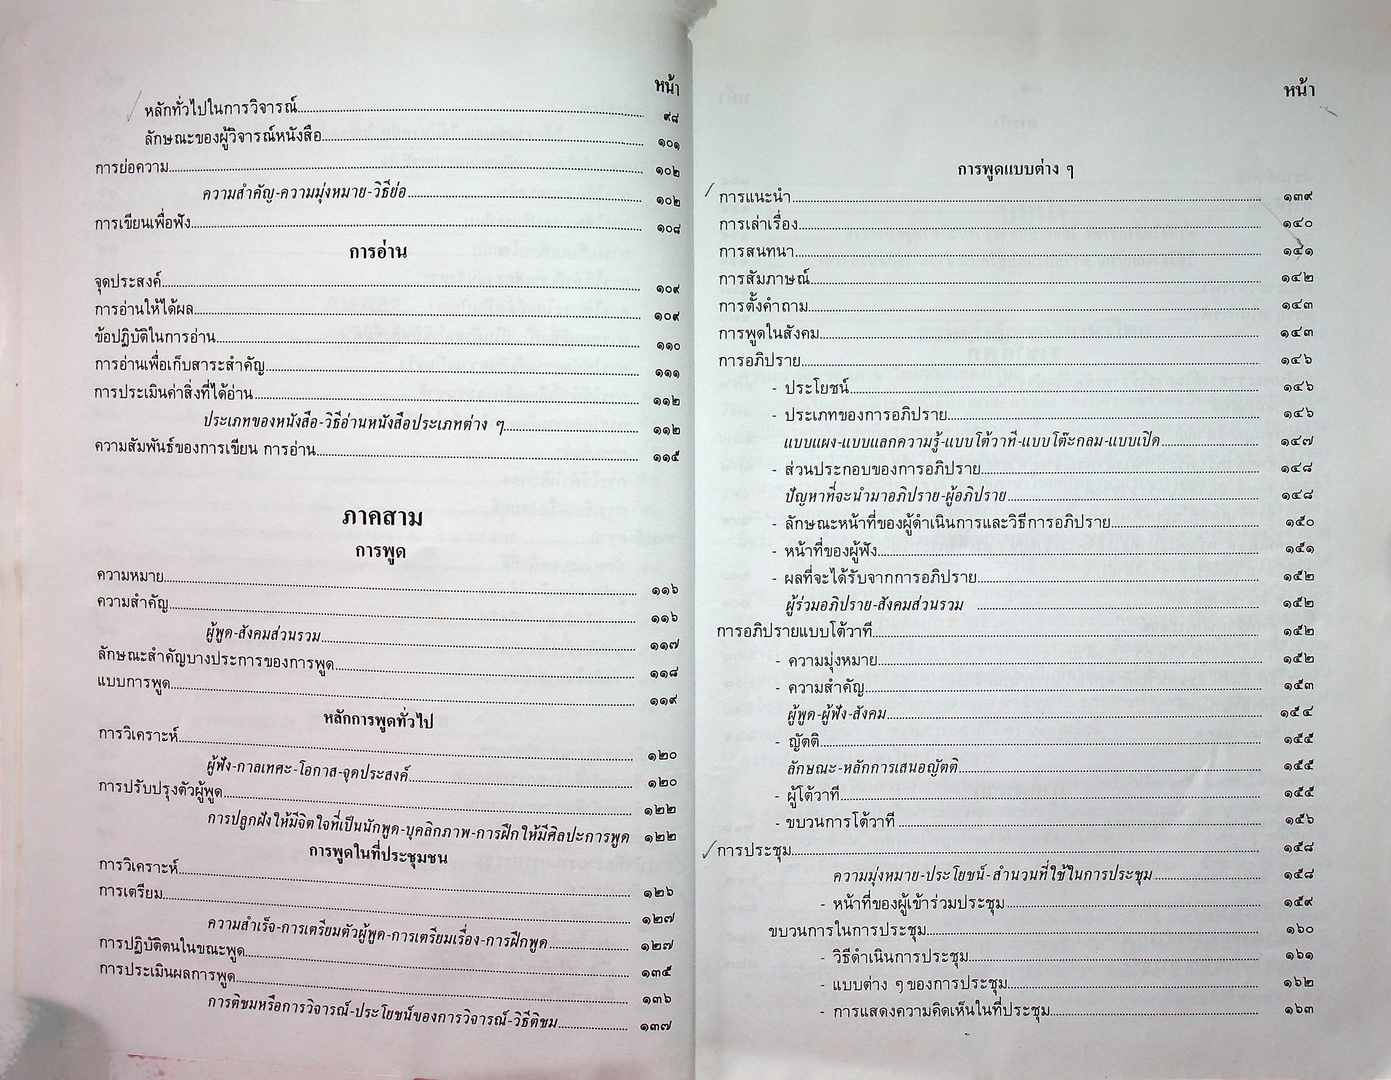 หน้า
หลักทั่วไปในการวิจารณ์ ๙๘
ลักษณะของผู้วิจารณ์หนังสือ ๑๐๑
การย่อความ ๑๐๒
ความสำคัญ-ความมุ่งหมาย-วิธีย่อ ๑๐๒
การเขียนเพื่อฟัง ๑๐๘
การอ่าน
จุดประสงค์ ๑๐๙
การอ่านให้ได้ผล ๑๐๙
ข้อปฏิบัติในการอ่าน ๑๑๐
การอ่านเพื่อเก็บสาระสำคัญ ๑๑๑
การประเมินค่าสิ่งที่ได้อ่าน ๑๑๒
ประเภทของหนังสือ-วิธีอ่านหนังสือประเภทต่าง ๆ ๑๑๒
ความสัมพันธ์ของการเขียน การอ่าน ๑๑๕
ภาคสาม
การพูด
ความหมาย ๑๑๖
ความสำคัญ ๑๑๖
ผู้พูด-สังคมส่วนรวม ๑๑๗
ลักษณะสำคัญบางประการของการพูด ๑๑๘
แบบการพูด ๑๑๙
หลักการพูดทั่วไป
การวิเคราะห์ ๑๒๐
ผู้ฟัง-กาลเทศะ-โอกาส-จุดประสงค์ ๑๒๐
การปรับปรุงตัวผู้พูด ๑๒๒
การปลูกฝังให้มีจิตใจที่เป็นนักพูด-บุคลิกภาพ-การฝึกให้มีศิลปะการพูด ๑๒๒
การพูดในที่ประชุมชน
การวิเคราะห์ ๑๒๖
การเตรียม ๑๒๗
ความสำเร็จ-การเตรียมตัวผู้พูด-การเตรียมเรื่อง-การฝึกพูด ๑๒๗
การปฏิบัติตนในขณะพูด ๑๓๕
การประเมินผลการพูด ๑๓๖
การติชมหรือการวิจารณ์-ประโยชน์ของการวิจารณ์-วิธีติชม ๑๓๗
หน้า
การพูดแบบต่าง ๆ
การแนะนำ ๑๓๙
การเล่าเรื่อง ๑๔๐
การสนทนา ๑๔๑
การสัมภาษณ์ ๑๔๒
การตั้งคำถาม ๑๔๓
การพูดในสังคม ๑๔๓
การอภิปราย ๑๔๖
- ประโยชน์ ๑๔๖
- ประเภทของการอภิปราย ๑๔๖
แบบแผง-แบบแลกความรู้-แบบโต้วาที-แบบโต๊ะกลม-แบบเปิด ๑๔๗
- ส่วนประกอบของการอภิปราย ๑๔๘
ปัญหาที่จะนำมาอภิปราย-ผู้อภิปราย ๑๔๘
- ลักษณะหน้าที่ของผู้ดำเนินการและวิธีการอภิปราย ๑๕๐
- หน้าที่ของผู้ฟัง ๑๕๑
- ผลที่จะได้รับจากการอภิปราย ๑๕๒
ผู้ร่วมอภิปราย-สังคมส่วนรวม ๑๕๒
การอภิปรายแบบโต้วาที ๑๕๒
- ความมุ่งหมาย ๑๕๒
- ความสำคัญ ๑๕๓
ผู้พูด-ผู้ฟัง-สังคม ๑๕๔
- ญัตติ ๑๕๕
ลักษณะ-หลักการเสนอญัตติ ๑๕๕
- ผู้โต้วาที ๑๕๕
- ขบวนการโต้วาที ๑๕๖
การประชุม ๑๕๘
ความมุ่งหมาย-ประโยชน์-สำนวนที่ใช้ในการประชุม ๑๕๘
- หน้าที่ของผู้เข้าร่วมประชุม ๑๕๙
ขบวนการในการประชุม ๑๖๐
- วิธีดำเนินการประชุม ๑๖๑
- แบบต่าง ๆ ของการประชุม ๑๖๒
- การแสดงความคิดเห็นในที่ประชุม ๑๖๓